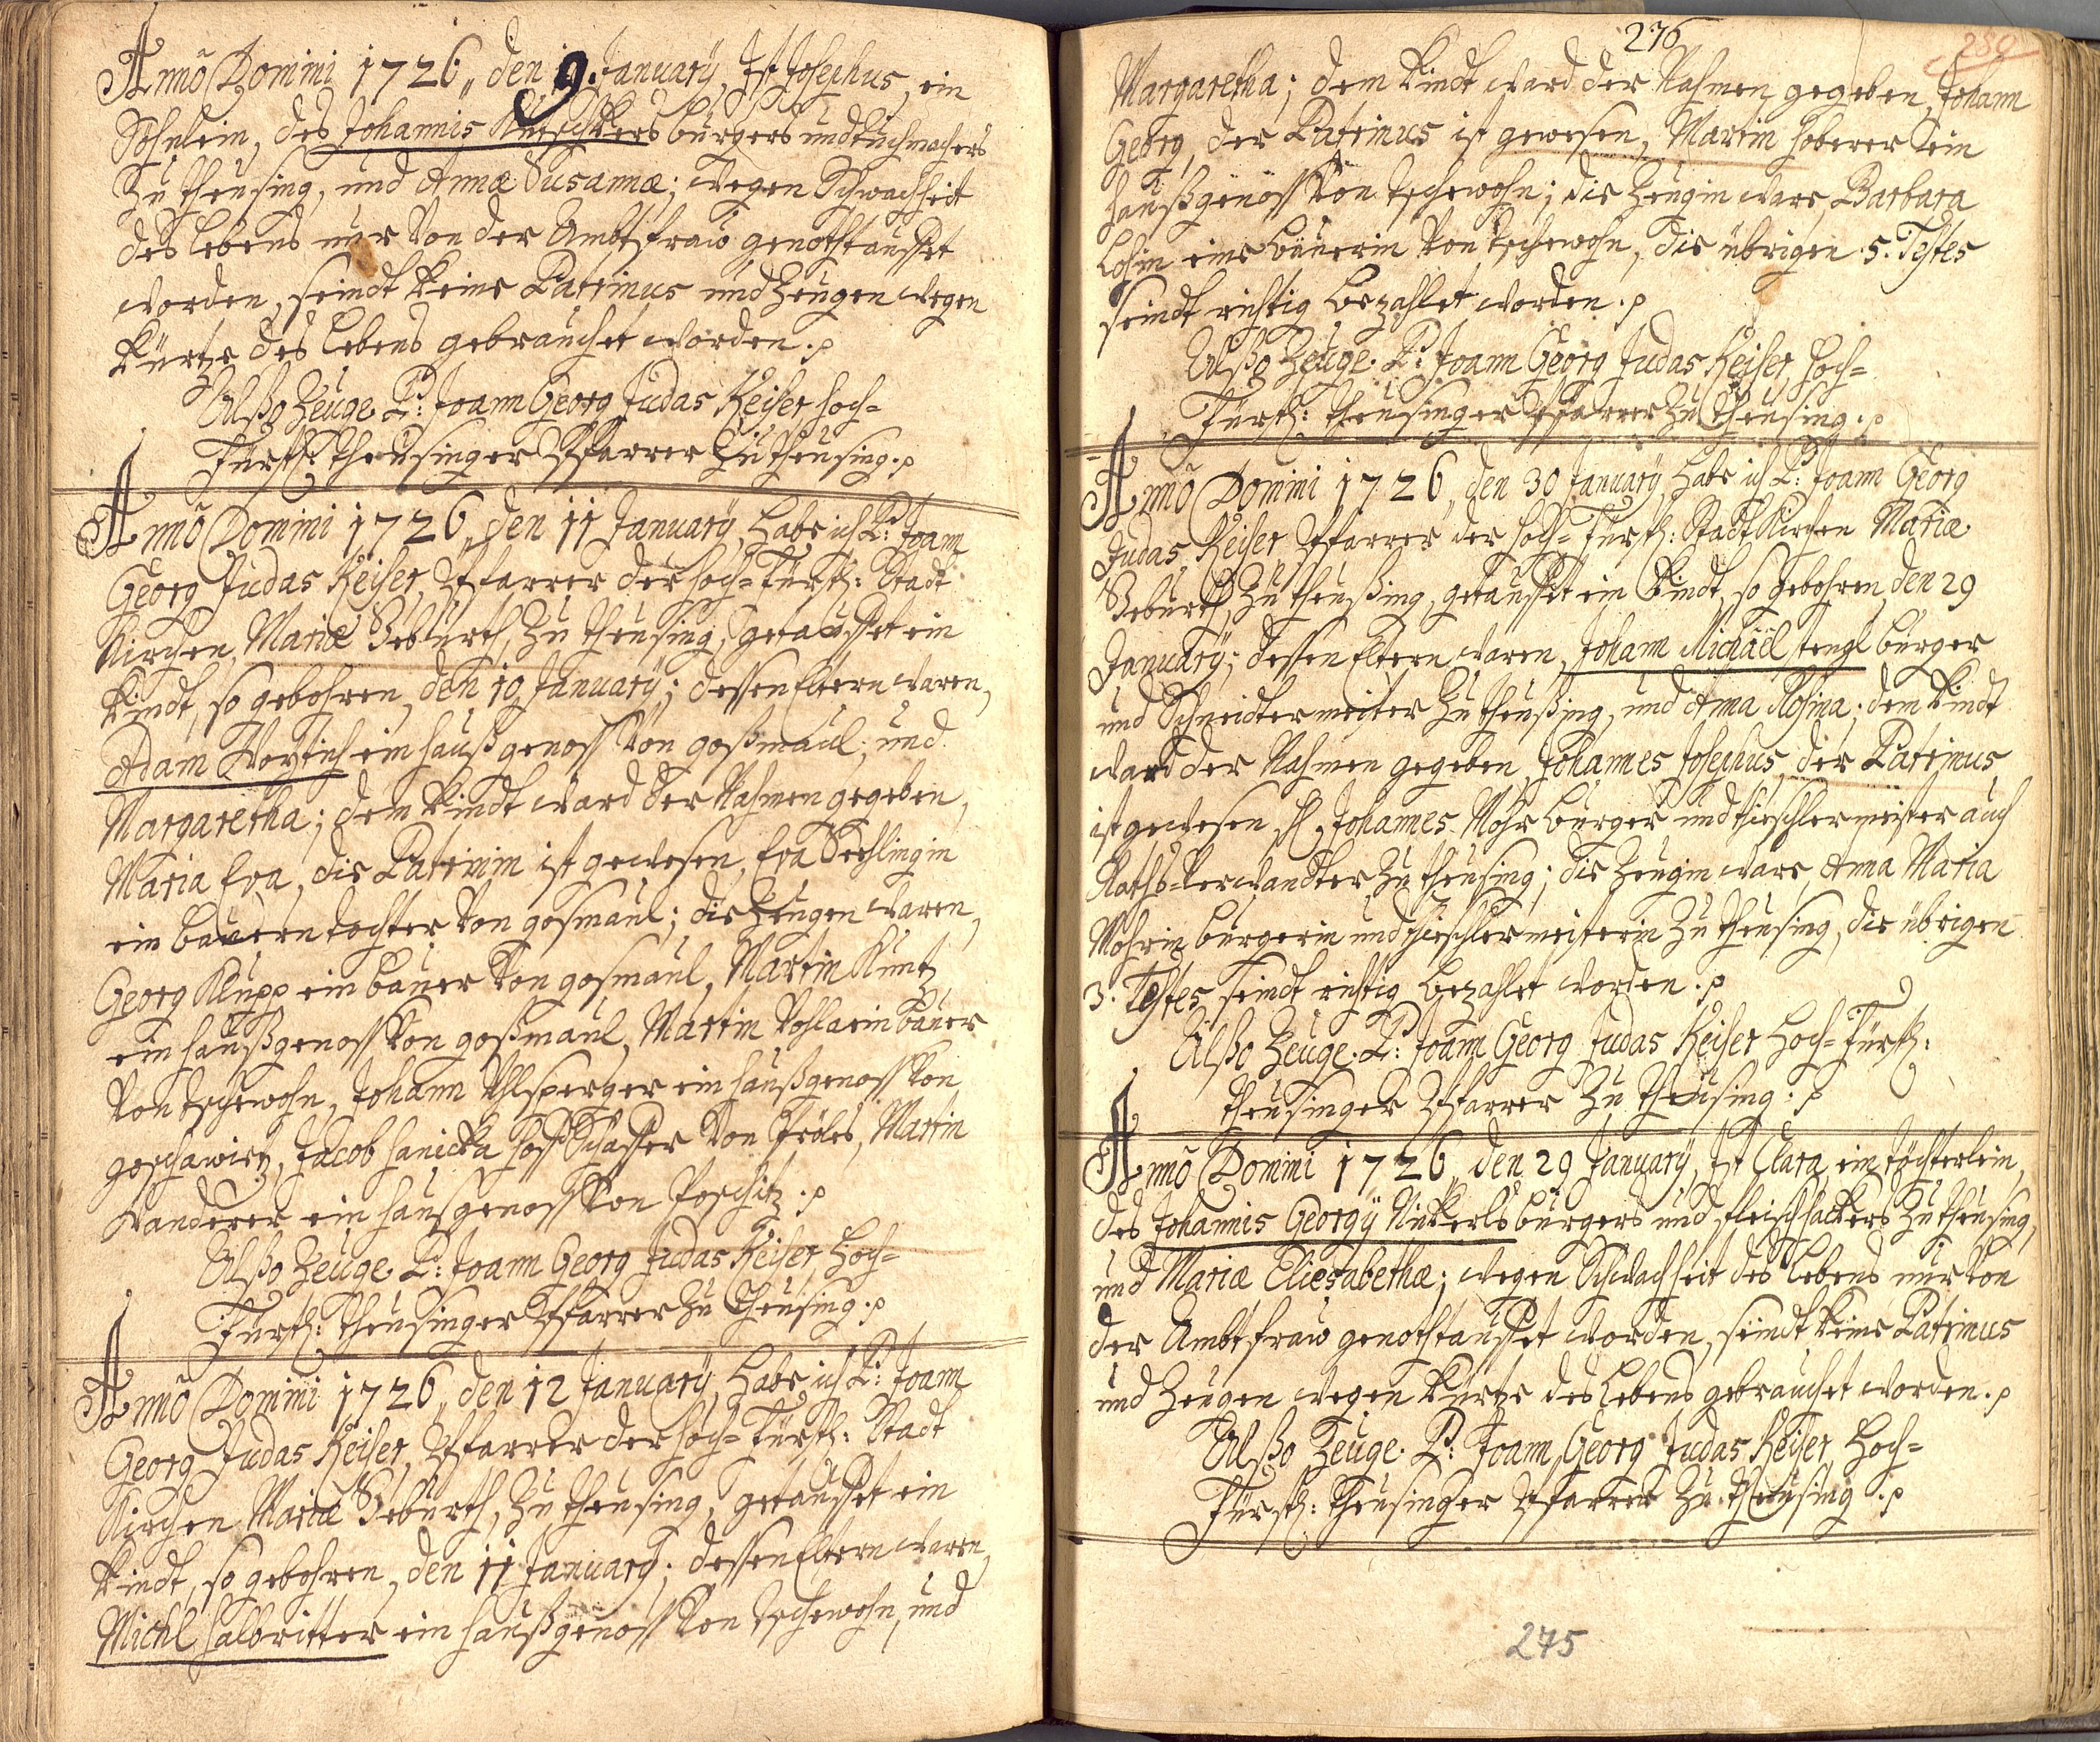 Anno Domini 1726, den 9. January, Ist Josephus, ein
Söhnlein, des Johannis bürgers und tuchmachers
Zu Theusing, und Annæ Susannæ; wegen Schwachheit
des lebens nur von der Ambtsfraw genothtauffet
worden, seindt keine Patrinus und Zeugen wegen
Kürtze des lebens gebrauchet worden.
Alßo Zeuge P: Joann Georg Judas Keiser hoch-
Fürstl: Theusinger Pfarrer Zu Theusing.
Anno Domini 1726, den 11 January, habe ich P: Joann
Georg Judas Keiser, Pfarrer der hoch-Fürstl: Stadt
Kirchen Mariæ Geburth, Zu Theusing, getauffet ein
Kindt, so gebohren, den 10 January; dessen Eltern waren,
Adam Woytich ein haußgenoss von goßmaul; und
Margaretha; dem Kindt ward der Nahmen gegeben,
Maria Eva, die Patrinin ist gewesen, Eva
ein bauern tochter von gosmaul; die Zeugen waren,
Georg Klupp ein bauer von gosmaul, Martin Kuntz
ein haußgenoss von goßmaul, Martin ein bauer
von tschewohn, Johann ein haußgenoss von
goschawitz, Jacob hanicka hoff Schaffer von Pröles, Martin
wanderer ein haußgenoss von Poschitz.
Alßo Zeuge P: Joann Georg Judas Keiser hoch-
Fürstl: Theusinger Pfarrer Zu Theusing.
Anno Domini 1726, den 12 January, habe ich P: Joann
Georg Judas Keiser, Pfarrer der hoch-Fürstl: Stadt
Kirchen Mariæ Geburth, Zu Theusing, getauffet ein
Kindt, so gebohren, den 11 January; dessen Eltern waren,
Michl halbritter ein haußgenoss von tschewohn, und
276
289
Margaretha; dem Kindt ward der Nahmen gegeben, Johann
Georg, der Patrinus ist gewesen, Martin hoberer ein
haußgenoss von tschewohn; die Zeugin ware, Barbara
Losin eine bäuerin von tschewohn, die übrigen 5. Testes
seindt richtig bezahlet worden.
Alßo Zeuge P: Joann Georg Judas Keiser, hoch-
Fürstl: Theusinger Pfarrer Zu Theusing.
Anno Domini 1726, den 30 January, habe ich P: Joann Georg
Judas Keiser Pfarrer der hoch-Fürstl: Stadt Kirchen Mariæ
Geburth, Zu Theußing, getauffet ein Kindt, so gebohren, den 29
January; dessen Eltern waren, Johann Michäel stengl bürger
und Schneidtermeister Zu Theußing, und Anna Rosina; dem Kindt
ward der Nahmen gegeben, Johannes Josephus, der Patrinus
ist gewesen, H. Johannes Mohr bürger und thieschlermeister auch
Raths-Verwandter Zu Theusing; die Zeugin ware, Anna Maria
Mohrin bürgerin und thieschlermeisterin Zu Theusing, die übrigen
3. Testes seindt richtig bezahlet worden.
Alßo Zeuge P: Joann Georg Judas Keiser hoch-Fürstl:
Theusinger Pfarrer Zu Theusing.
Anno Domini 1726, den 29 January, Ist Clara, ein töchterlein,
des Johannis Georgÿ Ninkerls bürgers und fleischhackers Zu Theusing,
und Mariæ Eliesabethæ; wegen Schwachheit des lebens nur von
der Ambtsfraw genothtauffet worden, seindt keine Patrinus
und Zeugen wegen kürtze des lebens gebrauchet worden.
Alßo Zeuge P: Joann Georg Judas Keiser hoch-
Fürstl: Theusinger Pfarrer Zu Theusing.
275